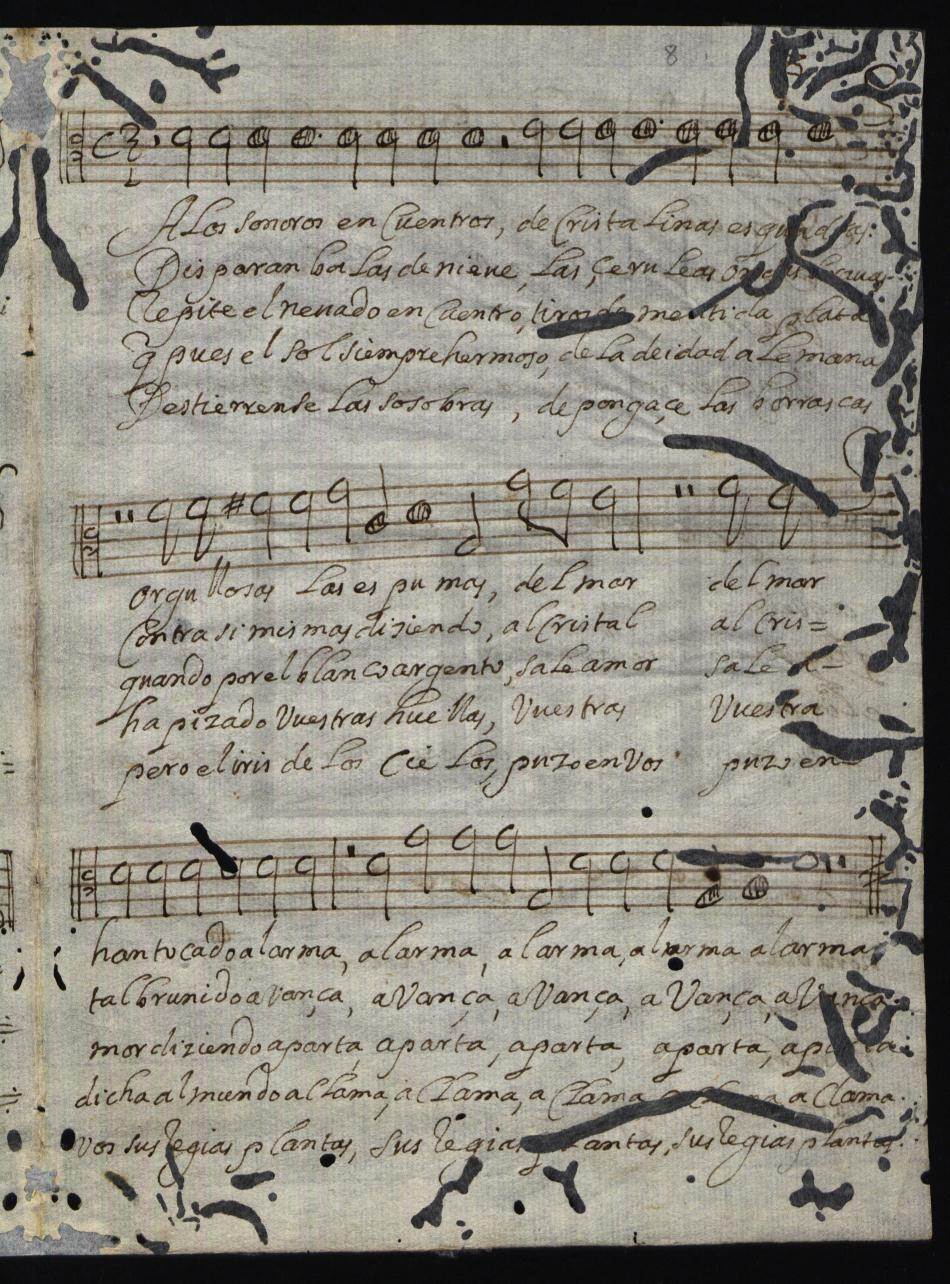 8
A Los sonoros en Cuentros, de Crista Linas
Disparan ba Las de nieve, Las, Çeru Leas
Repite el nevado en Cuentro, tiros de mentida plata
q pues el Sol siempre hermoso, de La deidad a Lemana
Destierrense Las sosobras, de pongaçe Las borrascas
orgullosas Las es pu mas, del mar del mar
Contra si mismas diziendo, al Cristal al Cris=
quando por el blanco argento, sale amor sale a=
ha pizado Vuestras huellas, Vuestras Vuestra
pero el iris de Los Cie Los, puzo en Vos puzo en=
han tocado al arma, a larma, a larma, alarma a larma
tal brunido aVança, aVança, aVança, a Vança, aVança.
mor diziendo aparta aparta, aparta, aparta, aparta
dicha al mundo a Clama, a Clama, a Clama a Clama.
Vos sus regias plantas, Sus regias plantas, sus regias plantas.